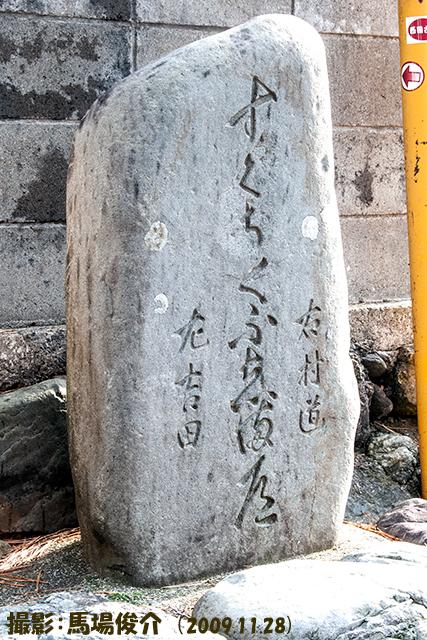 右村道
すくちくふ志満
左吉田
撮影:馬場俊介 (2009.11.28)